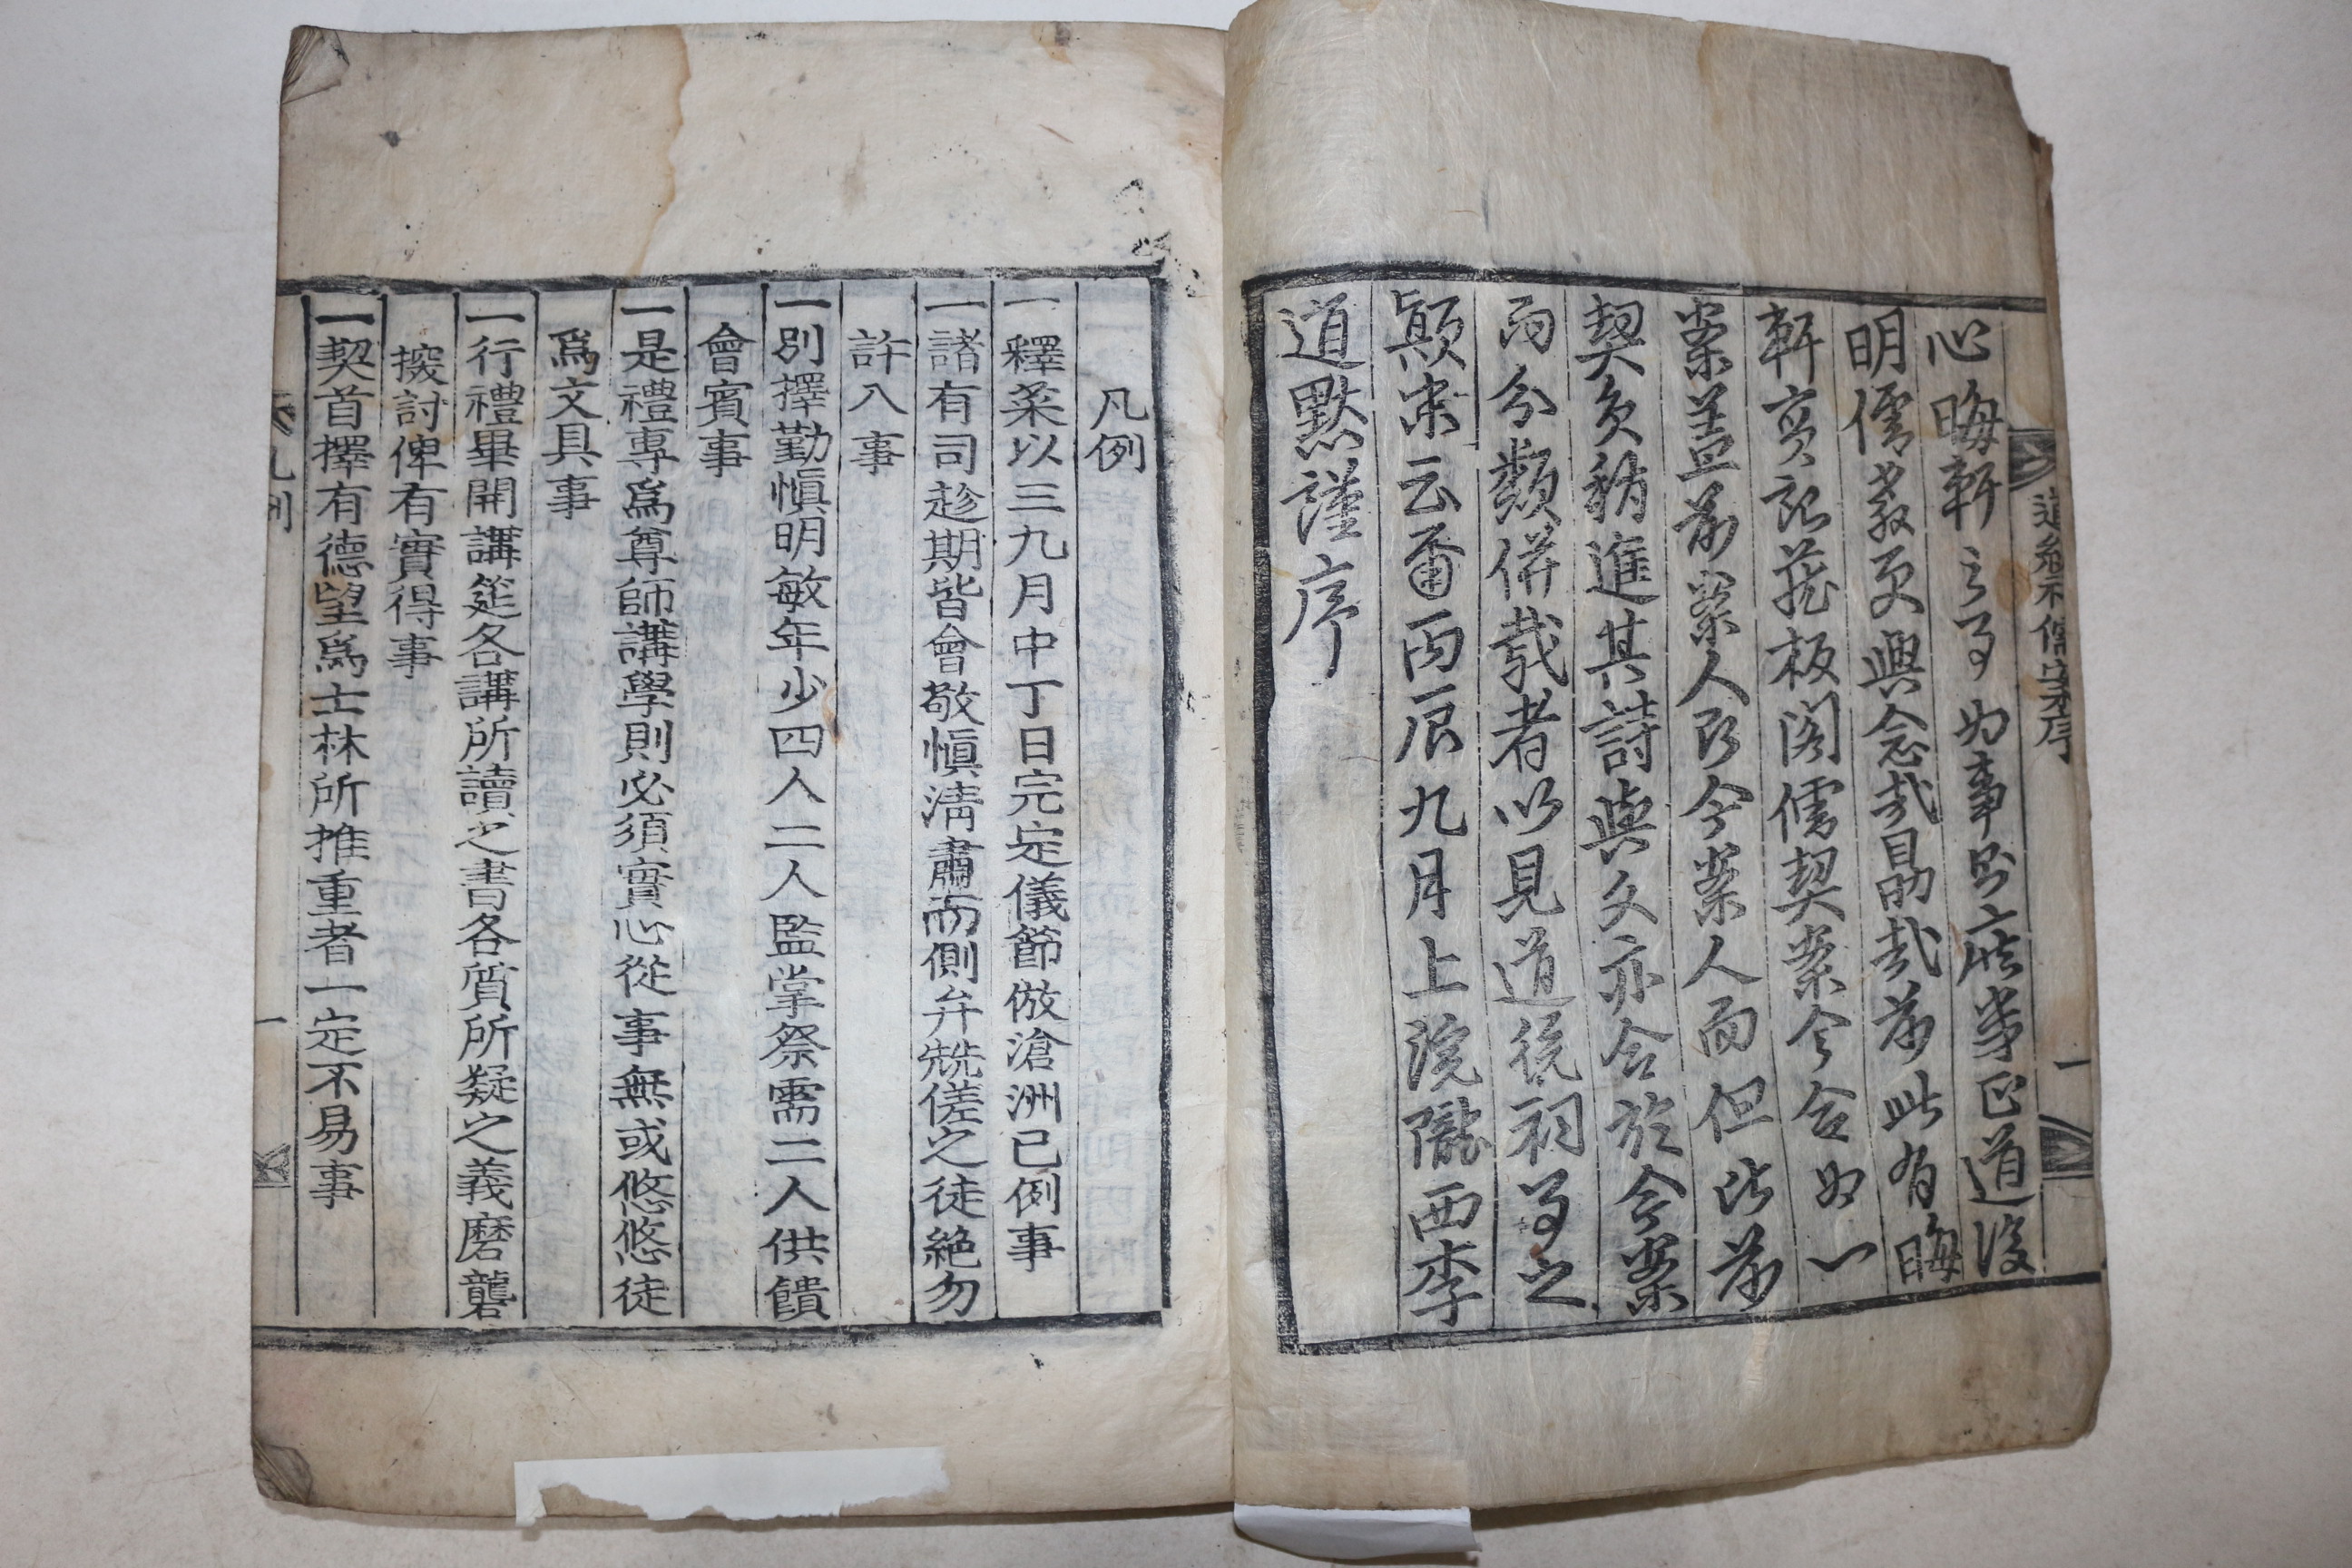 道統祠儒案序
一
心晦軒之事爲事則庶幾正道復
明儒教更興念哉勗哉前此有晦
軒實記藏板閣儒契案今合如一
案蓋前案人即今案人而但從前
契員稍進其詩與文亦合於今案
而分類併載者以見道統祠事之
顛末云爾丙辰九月上浣隴西李
道默謹序
凡例
一釋菜以三九月中丁日完定儀節倣滄洲已例事
一諸有司趁期皆會敬愼淸肅而側弁兟傞之徒絶勿
許入事
一別擇勤愼明敏年少四人二人監掌祭需二人供饋
會賓事
一是禮專爲尊師講學則必須實心從事無或悠悠徒
爲文具事
一行禮畢開講筵各講所讀之書各質所疑之義磨礱
㨙討俾有實得事
一契首擇有德望爲士林所推重者一定不易事
凡例
一